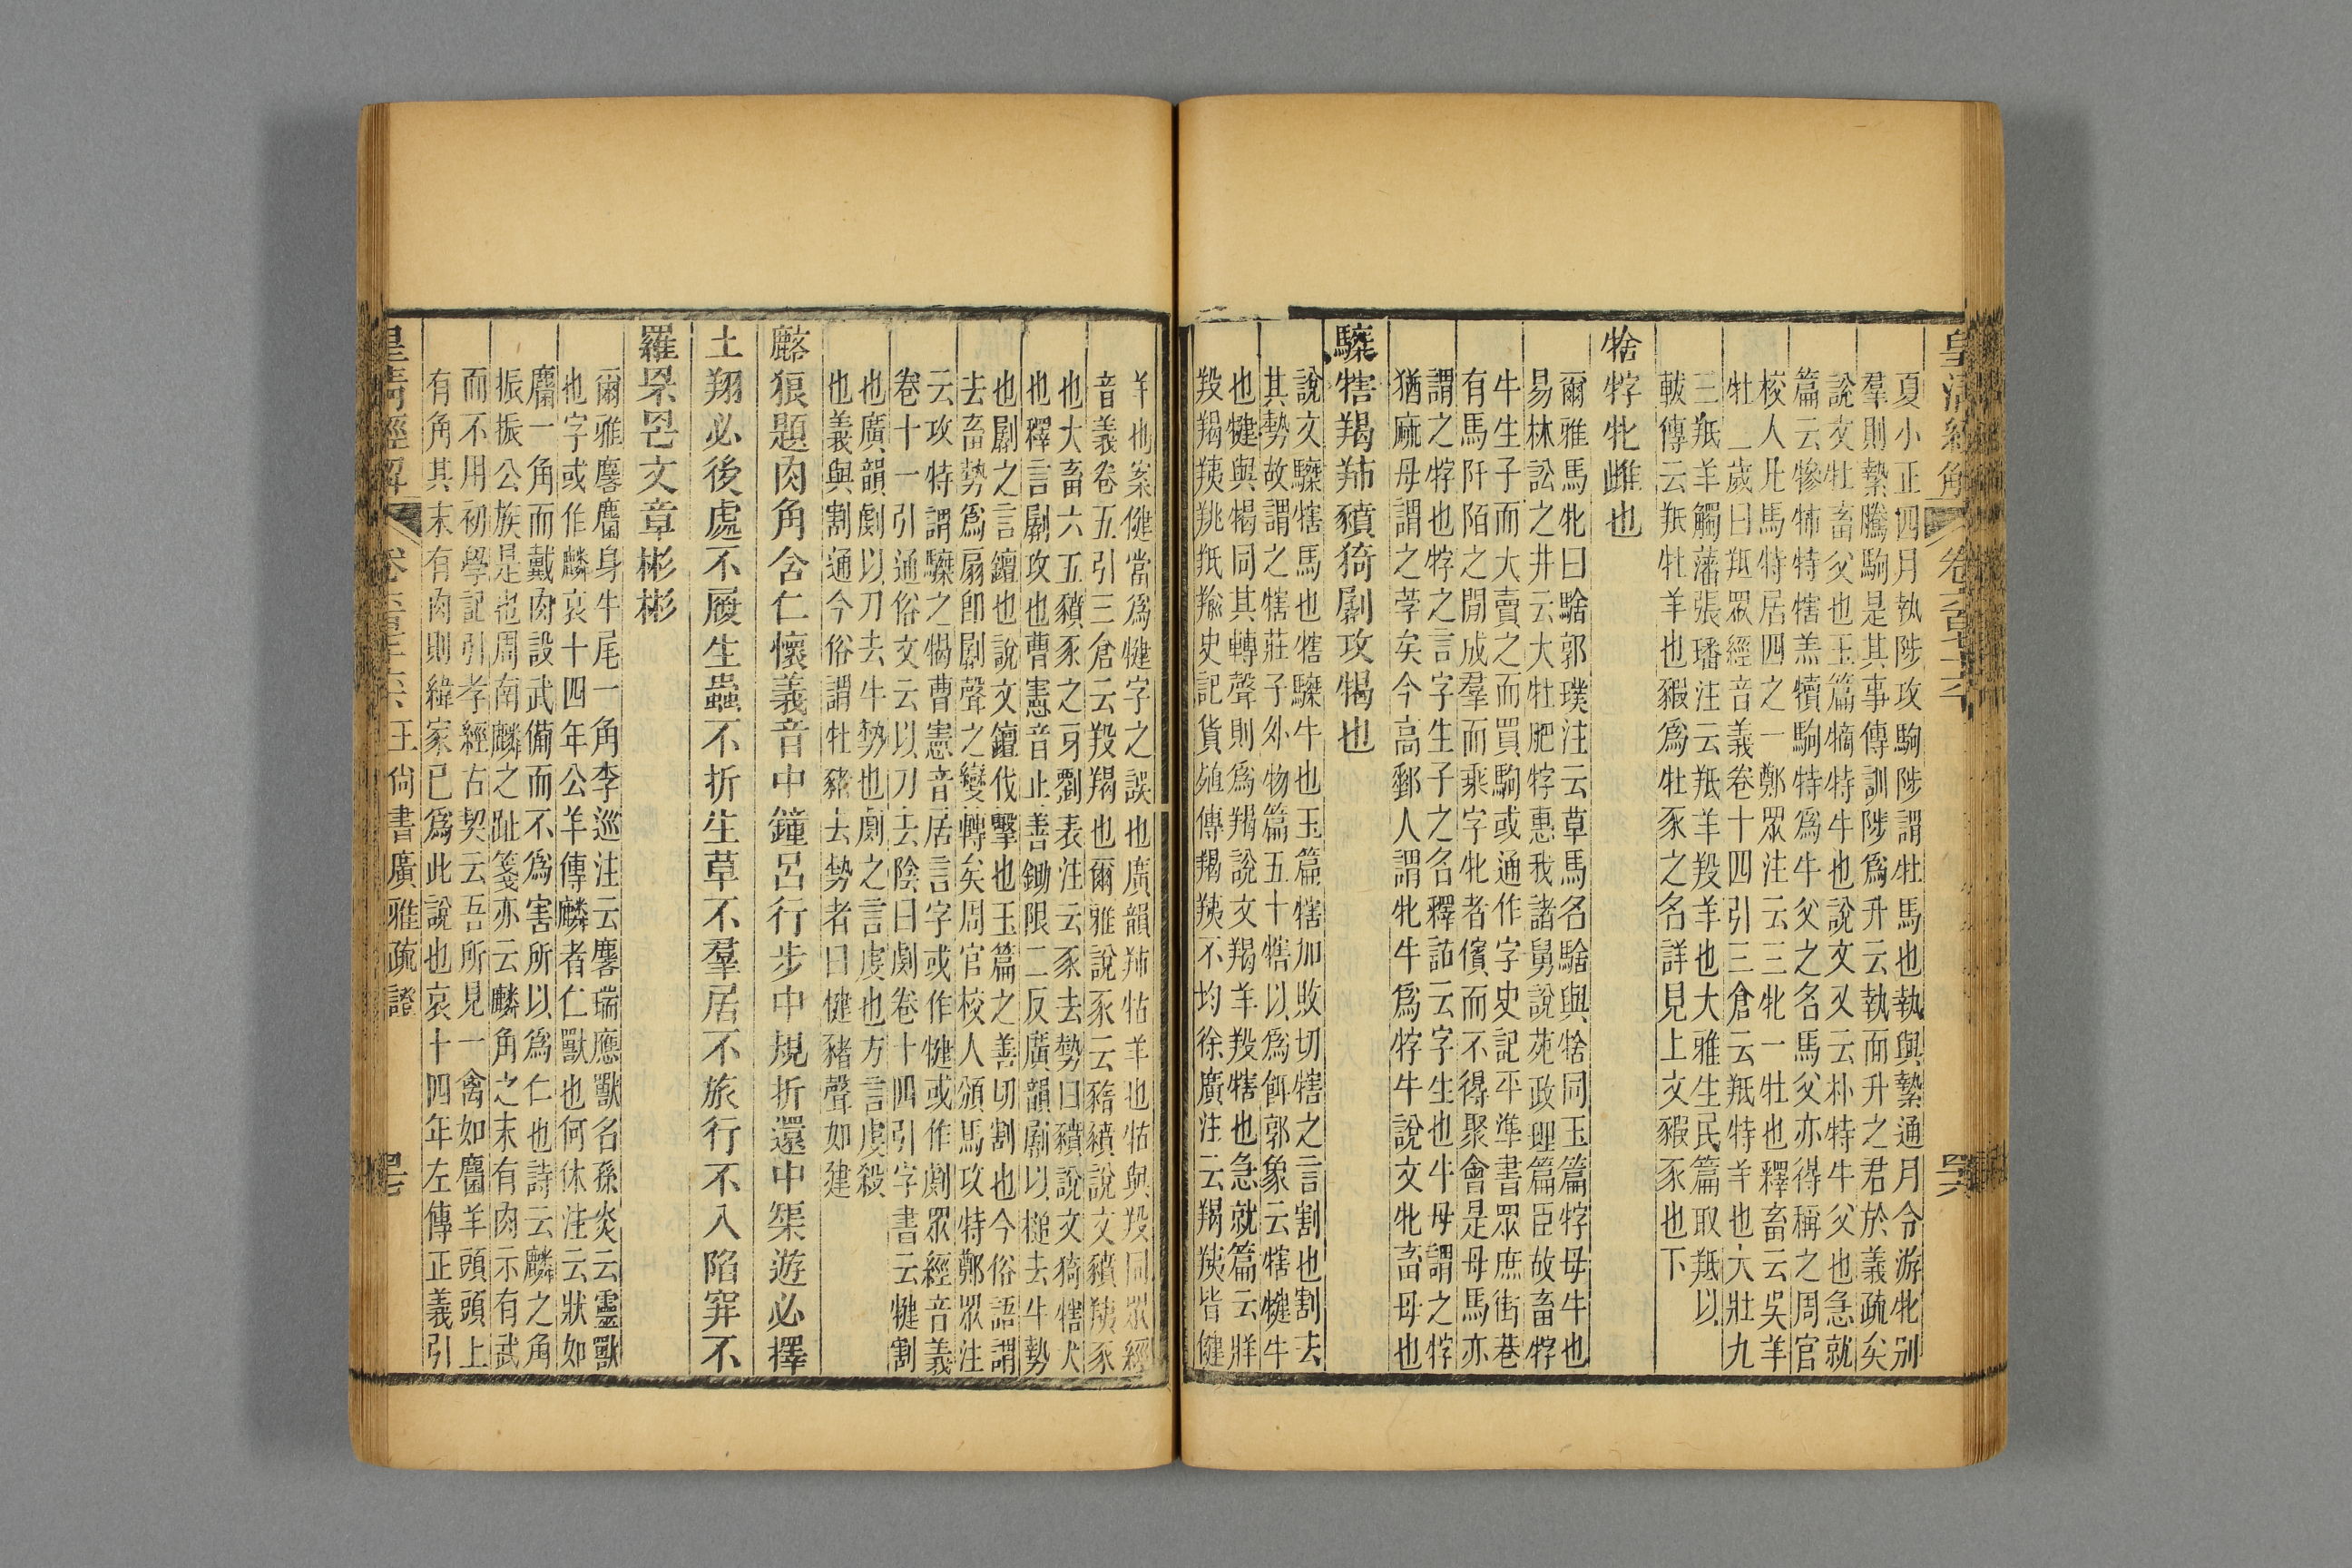 夏小正四月執陟攻駒陟謂牡馬也執與縶通月令游牝别
羣則縶騰駒是其事傳訓陟爲升云執而升之君於義疏矣
說文牡畜父也玉篇犕特牛也說文又云朴特牛父也急就
篇云犙㸬特犗羔犢駒特爲牛父之名馬父亦得稱之周官
校人凡馬特居四之一鄭眾注云三牝一牡也釋畜云吳羊
牡一歲曰羝眾經音義卷十四引三倉云羝特羊也大壯九
三羝羊觸藩張璠注云羝羊羖羊也大雅生民篇取羝以
軷傳云羝牡羊也豭爲牡豕之名詳見上文豭豕也下
㹑牸牝雌也
爾雅馬牝曰騇郭璞注云草馬名騇與㹑同玉篇牸母牛也
易林訟之井云大牡肥牸惠我諸舅說苑政理篇臣故畜牸
牛生子而大賣之而買駒或通作字史記平準書眾庶街巷
有馬阡陌之閒成羣而乘字牝者儐而不得聚會是母馬亦
謂之牸也牸之言字生子之名釋詁云字生也牛母謂之牸
猶麻母謂之荸矣今高郵人謂牝牛爲牸牛說文牝畜母也
騬犗羯㸬豶猗劇攻㹇也
說文騬犗馬也犗騬牛也玉篇犗加敗切犗之言割也割去
其勢故謂之犗莊子外物篇五十犗以爲餌郭象云犗犍牛
也犍與㹇同其轉聲則爲羯說文羯羊羖犗也急就篇云牂
羖羯羠𦍩羝羭史記貨殖傳羯羠不均徐廣注云羯羠皆健
羊也案健當爲犍字之誤也廣韻㸬牯羊也牯與羖同眾經
音義卷五引三倉云羖羯也爾雅說豕云豬豶說文豶羠豕
也大畜六五豶豕之牙劉表注云豕去勢曰豶說文猗犗犬
也釋言劇攻也曹憲音止善鋤限二反廣韻劇以槌去牛勢
也劇之言鏟也說文鏟伐擊也玉篇之善切割也今俗語謂
去畜勢爲扇卽劇聲之變轉矣周官校人頒馬攻特鄭眾注
云攻特謂騬之㹇曹憲音居言字或作犍或作劇眾經音義
卷十一引通俗文云以刀去陰曰劇卷十四引字書云犍割
也廣韻劇以刀去牛勢也劇之言虔也方言虔殺
也義與割通今俗謂牡豬去勢者曰犍豬聲如建
麐狼題肉角含仁懷義音中鐘呂行步中規折還中榘遊必擇
土翔必後處不履生蟲不折生草不羣居不旅行不入陷穽不
羅罘罔文章彬彬
爾雅麐麕身牛尾一角李巡注云麐瑞應獸名孫炎云靈獸
也字或作麟哀十四年公羊傳麟者仁獸也何休注云狀如
麕一角而戴肉設武備而不爲害所以爲仁也詩云麟之角
振振公族是也周南麟之趾箋亦云麟角之末有肉示有武
而不用初學記引孝經古契云吾所見一禽如麕羊頭頭上
有角其末有肉則緯家已爲此說也哀十四年左傳正義引
皇清經解 王尚書廣雅疏證